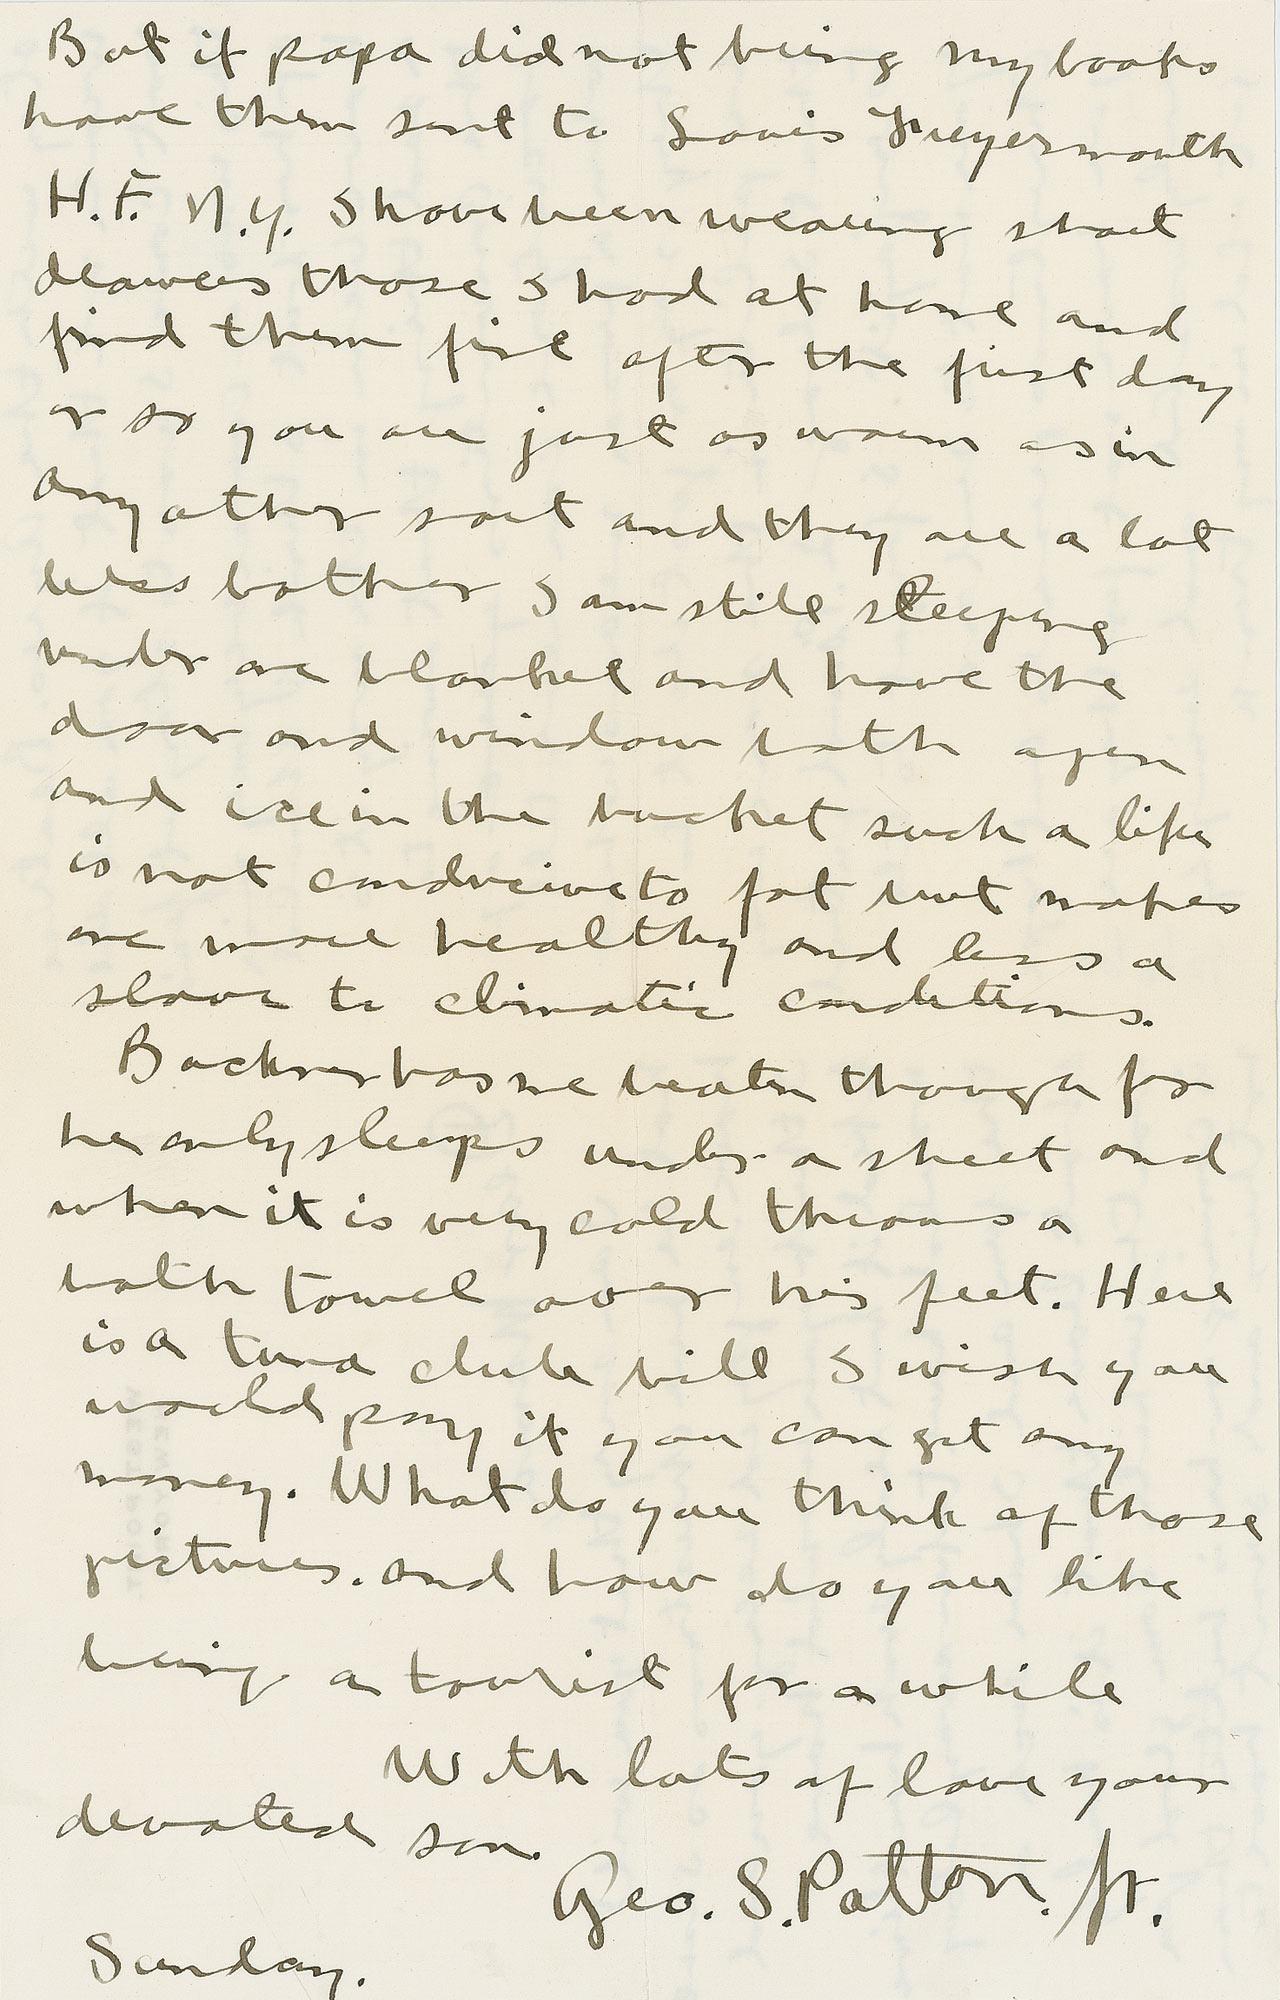 But if papa did not bring my books
have them sent to Louis
H.F. N.Y. I have been wearing short
drawers those I had at home and
find them fine after the first day
or so you are just as warm as in
any other sort and they are a lot
less bother I am still sleeping
under one blanket and have the
door and window both open
and ice in the bucket such a life
is not conducive to fat but makes
one more healthy and less a
slave to climatic conditions.
Buckner has me beaten though for
he only sleeps under a sheet and
when it is very cold throws a
bath towel over his feet. Here
is a tuna club bill I wish you
would pay if you can get any
money. What do you think of those
pictures. and how do you like
being a tourist for a while
With lots of love your
devoted son.
Geo. S. Patton. Jr.
Sunday.